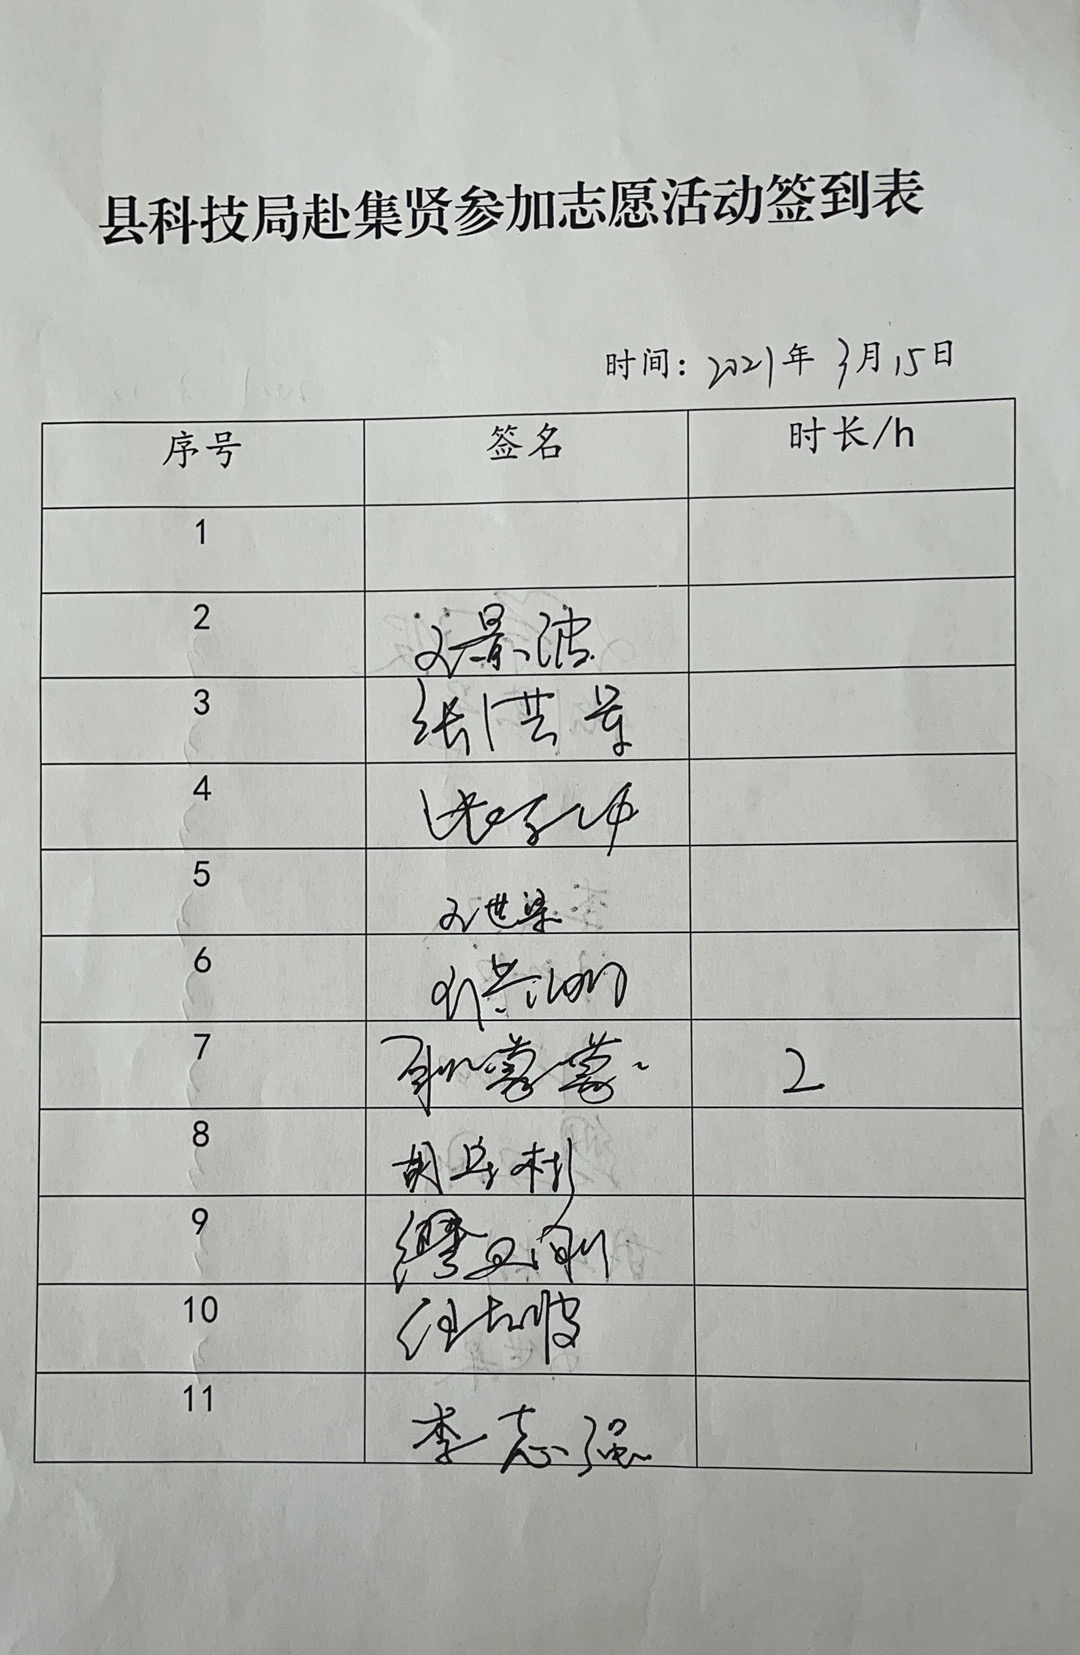 县科技局赴集贤参加志愿活动签到表
时间：2021年3月15日
序号 签名 时长/h
1
2 刘景波
3 张洪军
4
5 刘世梁
6
7 耿蒙蒙 2
8 胡兵彬
9 缪卫刚
10 任志波
11 李志强